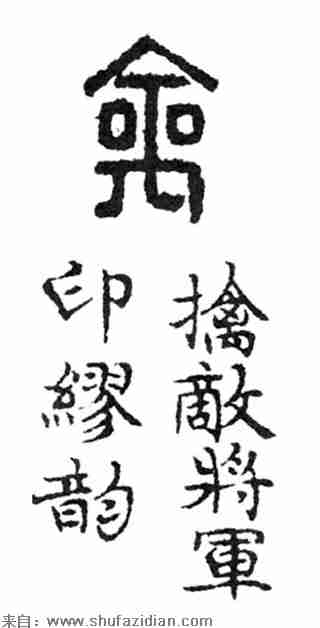 禽
擒敵將軍
印繆韵
来自：www.shufazidian.com